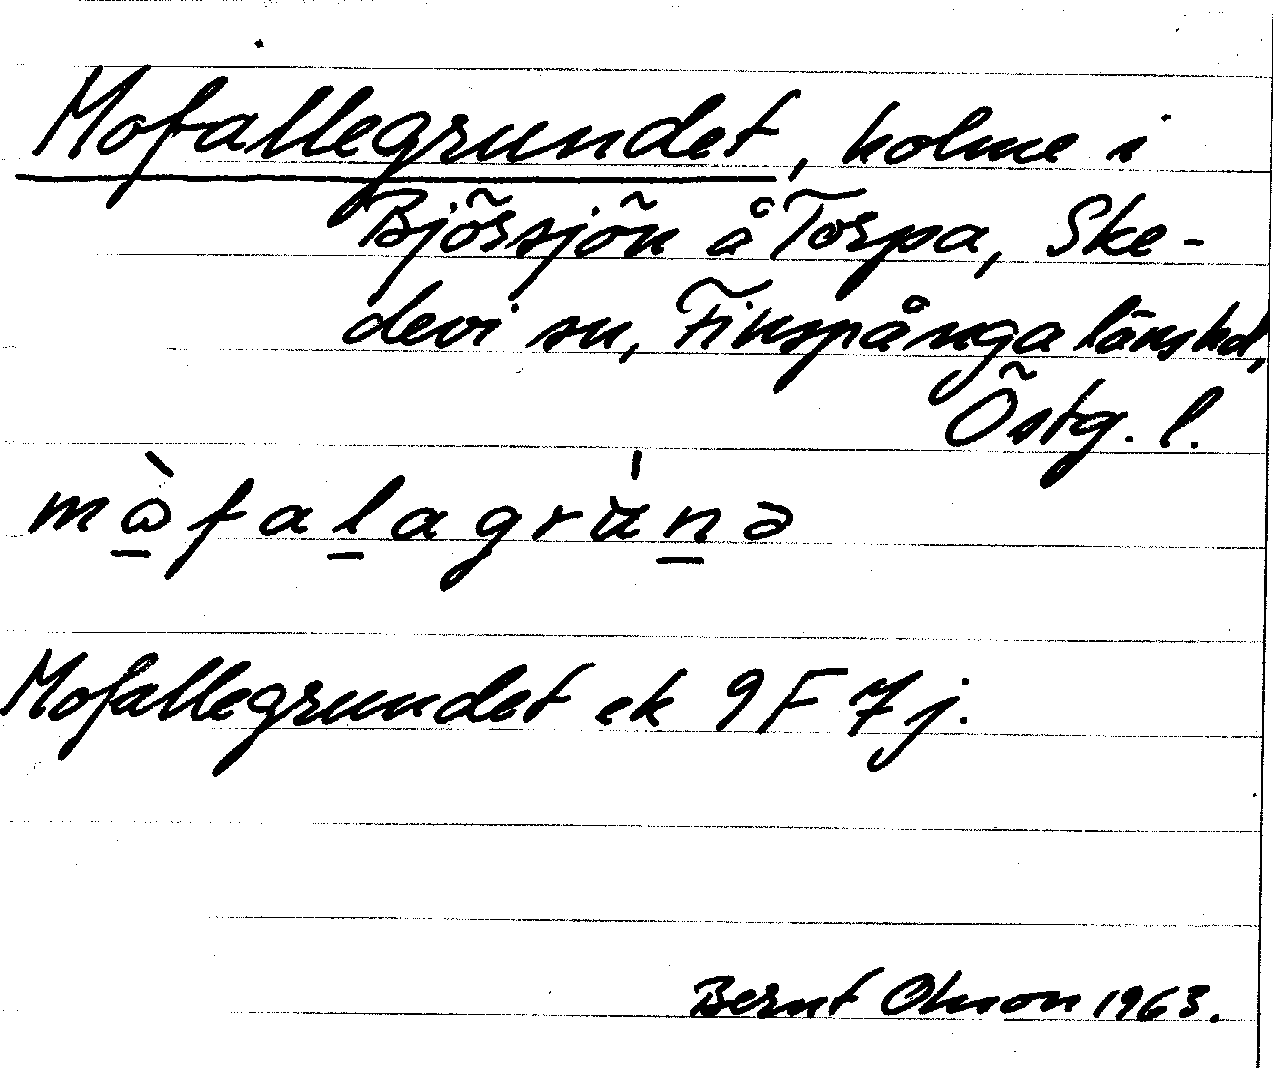 Mofallegrundet, holme i
Björsjön å Torpa, Ske-
devi sn, Finspånga länshd,
Östg. l.
mὼfalagrùnə
Mofallegrundet ek 9F 7j.
Bernt Olsson 1963.